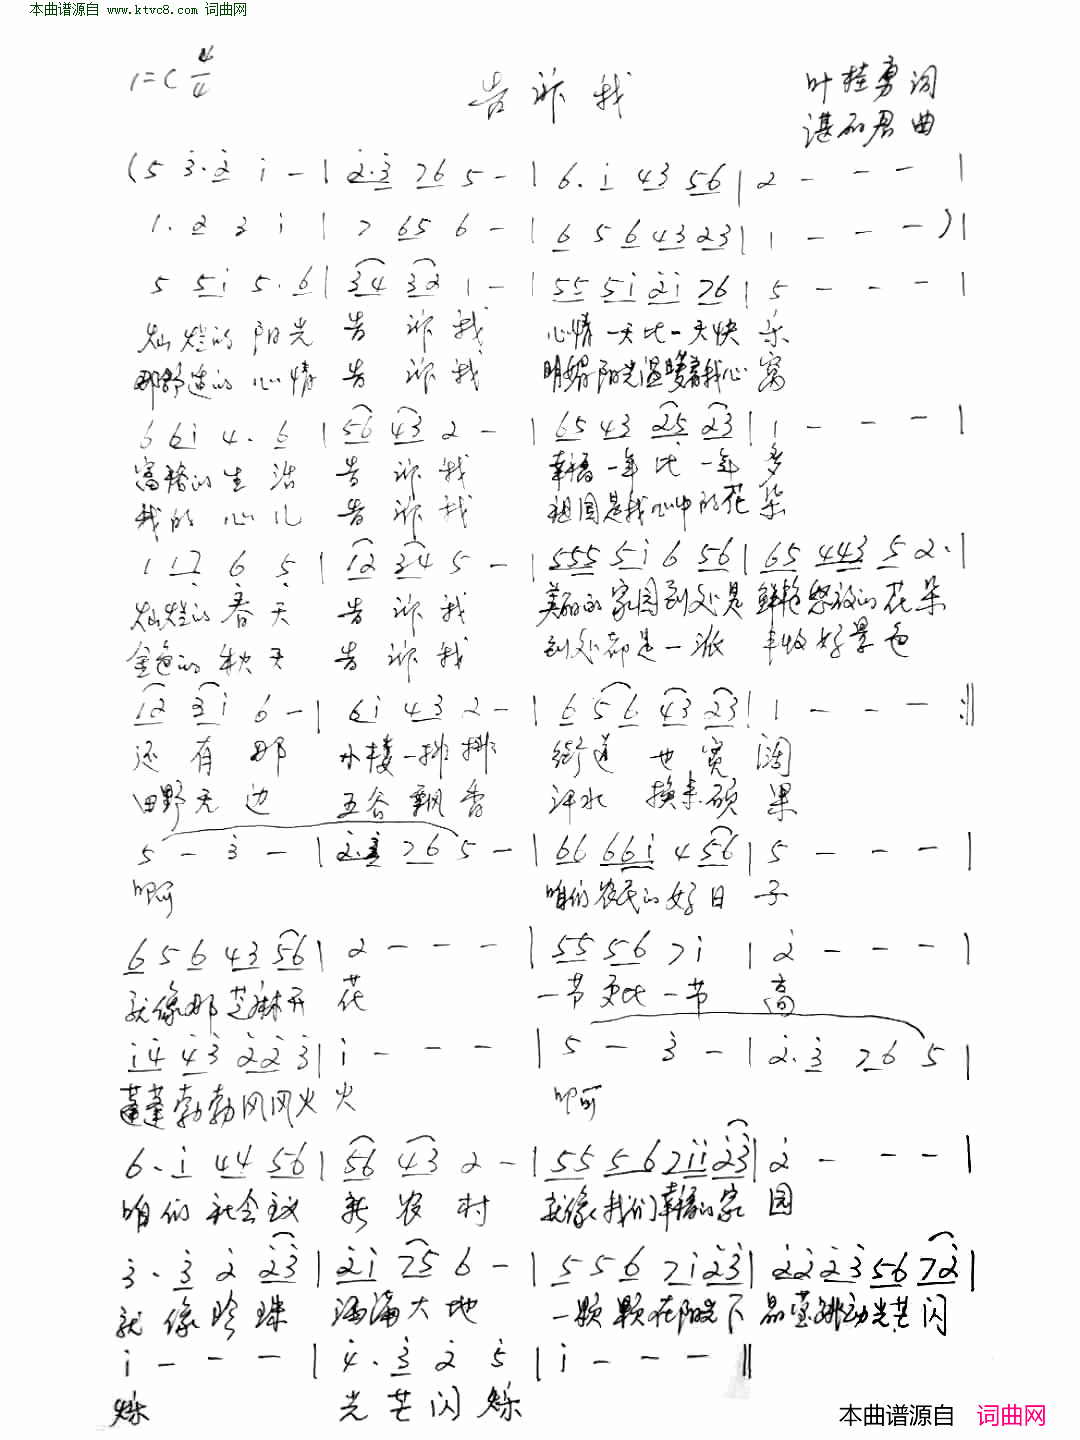 本曲谱源自 www.ktvc8.com 词曲网
1=C 4/4
告诉我
叶桂勇 词
谌君 曲
(5 3·2 i - | 2·3 76 5 - | 6· i 43 56 | 2 - - - |
1· 2 3 i | 7 65 6 - | 6 5 6 43 23 | 1 - - - ) |
5 5i 5· 6 | 34 32 1 - | 55 5i 2i 76 | 5 - - - |
灿烂的阳光 告诉我 心情一天比一天快乐
那舒适的心情 告诉我 明媚阳光温暖着我心窝
6 6i 4· 6 | 56 43 2 - | 65 43 25 23 | 1 - - - |
富裕的生活 告诉我 幸福一年比一年多
我的心儿 告诉我 祖国是我心中的花朵
1 17 6 5 | 12 34 5 - | 555 5i 6 56 | 65 443 5 2· |
灿烂的春天 告诉我 美丽的家园到处是 鲜艳怒放的花朵
金色的秋天 告诉我 到处都是一派 丰收好景色
12 3i 6 - | 6i 43 2 - | 6 5 6 43 23 | 1 - - - :||
还有那 小楼一排排 街道也宽阔
田野无边 五谷飘香 汗水换来硕果
5 - 3 - | 2·3 76 5 - | 66 66i 4 56 | 5 - - - |
啊 咱们农民的好日子
6 5 6 43 56 | 2 - - - | 55 56 7i | 2 - - - |
就像那芝麻开花 一节更比一节高
i4 43 22 3 | i - - - | 5 - 3 - | 2·3 76 5 |
蓬蓬勃勃风风火火 啊
6· i 44 56 | 56 43 2 - | 55 56 7ii 23 | 2 - - - |
咱们社会主义 新农村 就像我们幸福的家园
3· 3 2 23 | 2i 75 6 - | 5 5 6 7i 23 | 22 23 56 72 |
就像珍珠 洒满大地 一颗颗在阳光下 晶莹跳动光芒闪
i - - - | 4· 3 2 5 | i - - - ||
烁 光芒闪烁
本曲谱源自 词曲网